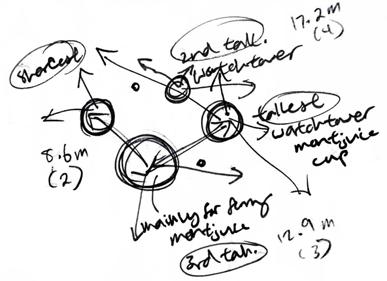 17.2m
(4)
2nd tall.
watchtower
shortest
tallest
watchtower
montjuic
cup
8.6m
(2)
mainly for
montjuic
3rd tall.
12.9m
(3)